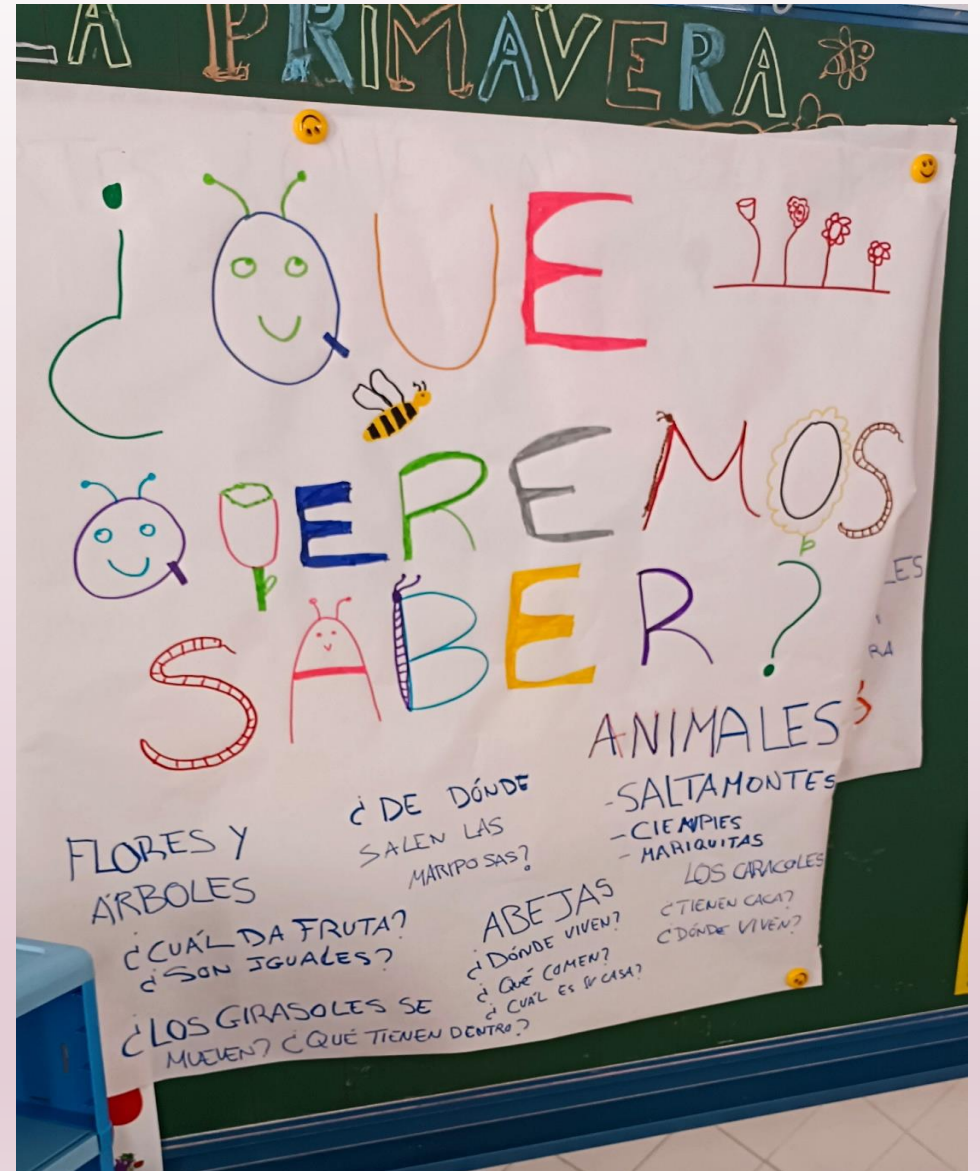 LA PRIMAVERA
¿QUE
QUEREMOS
SABER?
FLORES Y
ÁRBOLES
¿CUÁL DA FRUTA?
¿SON IGUALES?
¿LOS GIRASOLES SE
MUEVEN? ¿QUÉ TIENEN DENTRO?
¿DE DÓNDE
SALEN LAS
MARIPOSAS?
ABEJAS
¿DÓNDE VIVEN?
¿QUÉ COMEN?
¿CUÁL ES SU CASA?
ANIMALES
-SALTAMONTES
-CIENPIES
-MARIQUITAS
LOS CARACOLES
¿TIENEN CACA?
¿DÓNDE VIVEN?